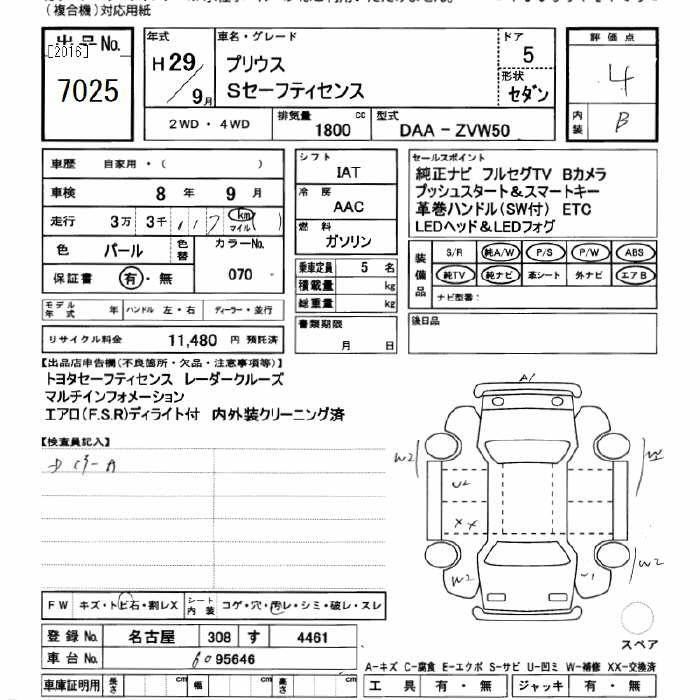 （複合機）対応用紙
出品No.
[2016]
7025
年式
H29
9月
車名・グレード
プリウス
Sセーフティセンス
ドア
5
形状
セダン
2WD・4WD
排気量
1800 cc
型式
DAA－ZVW50
評価点
4
内装
B
車歴 自家用・（ ）
車検 8 年 9 月
走行 3万 3千 1 1 7 km マイル ( )
色 パール 色替 カラーNo.
保証書 有・無 070
モデル年式 年 ハンドル 左・右 ディーラー・並行
リサイクル料金 11,480 円 預託済
シフト
IAT
冷房
AAC
燃料
ガソリン
乗車定員 5 名
積載量 kg
総重量 kg
書類期限
月 日
セールスポイント
純正ナビ フルセグTV Bカメラ
プッシュスタート＆スマートキー
革巻ハンドル(SW付) ETC
LEDヘッド＆LEDフォグ
装備品
S/R 純A/W P/S P/W ABS
純TV 純ナビ 革シート 外ナビ エアB
ナビ型番：
後日品
【出品店申告欄(不良箇所・欠品・注意事項等)】
トヨタセーフティセンス レーダークルーズ
マルチインフォメーション
エアロ(F.S.R)ディライト付 内外装クリーニング済
【検査員記入】
A1
W2
U2
XX
W2
W2
U1
FW キズ・トビ石・割レX シート内装 コゲ・穴・汚レ・シミ・破レ・スレ
登録No. 名古屋 308 す 4461
車台No. 6095646
車庫証明用 長さ cm 幅 cm 高さ cm
スペア
A-キズ C-腐食 E-エクボ S-サビ U-凹ミ W-補修 XX-交換済
工具 有・無 ジャッキ 有・無